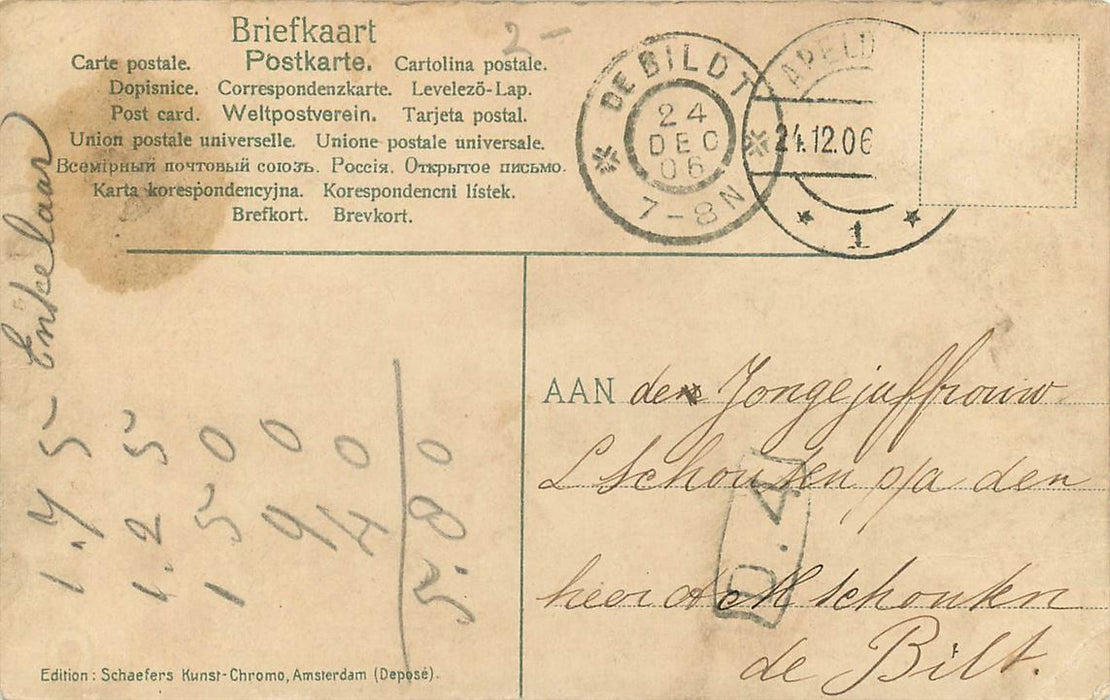 Briefkaart
2-
Carte postale. Postkarte. Cartolina postale.
Dopisnice. Correspondenzkarte. Levelezō-Lap.
Post card. Weltpostverein. Tarjeta postal.
Union postale universelle. Unione postale universale.
Всемірный почтовый союзъ. Россія. Открытое письмо.
Karta korespondencyjna. Korespondencni lístek.
Brefkort. Brevkort.
DE BILDT
24
DEC
06
7-8N
APELD
24.12.06
1
Enkelaar
1.45
1.25
150
90
40
580
AAN den Jongejuffrouw
L Schouten p/a den
heer Schouten
de Bilt.
D.4
Edition: Schaefers Kunst-Chromo, Amsterdam (Deposé).